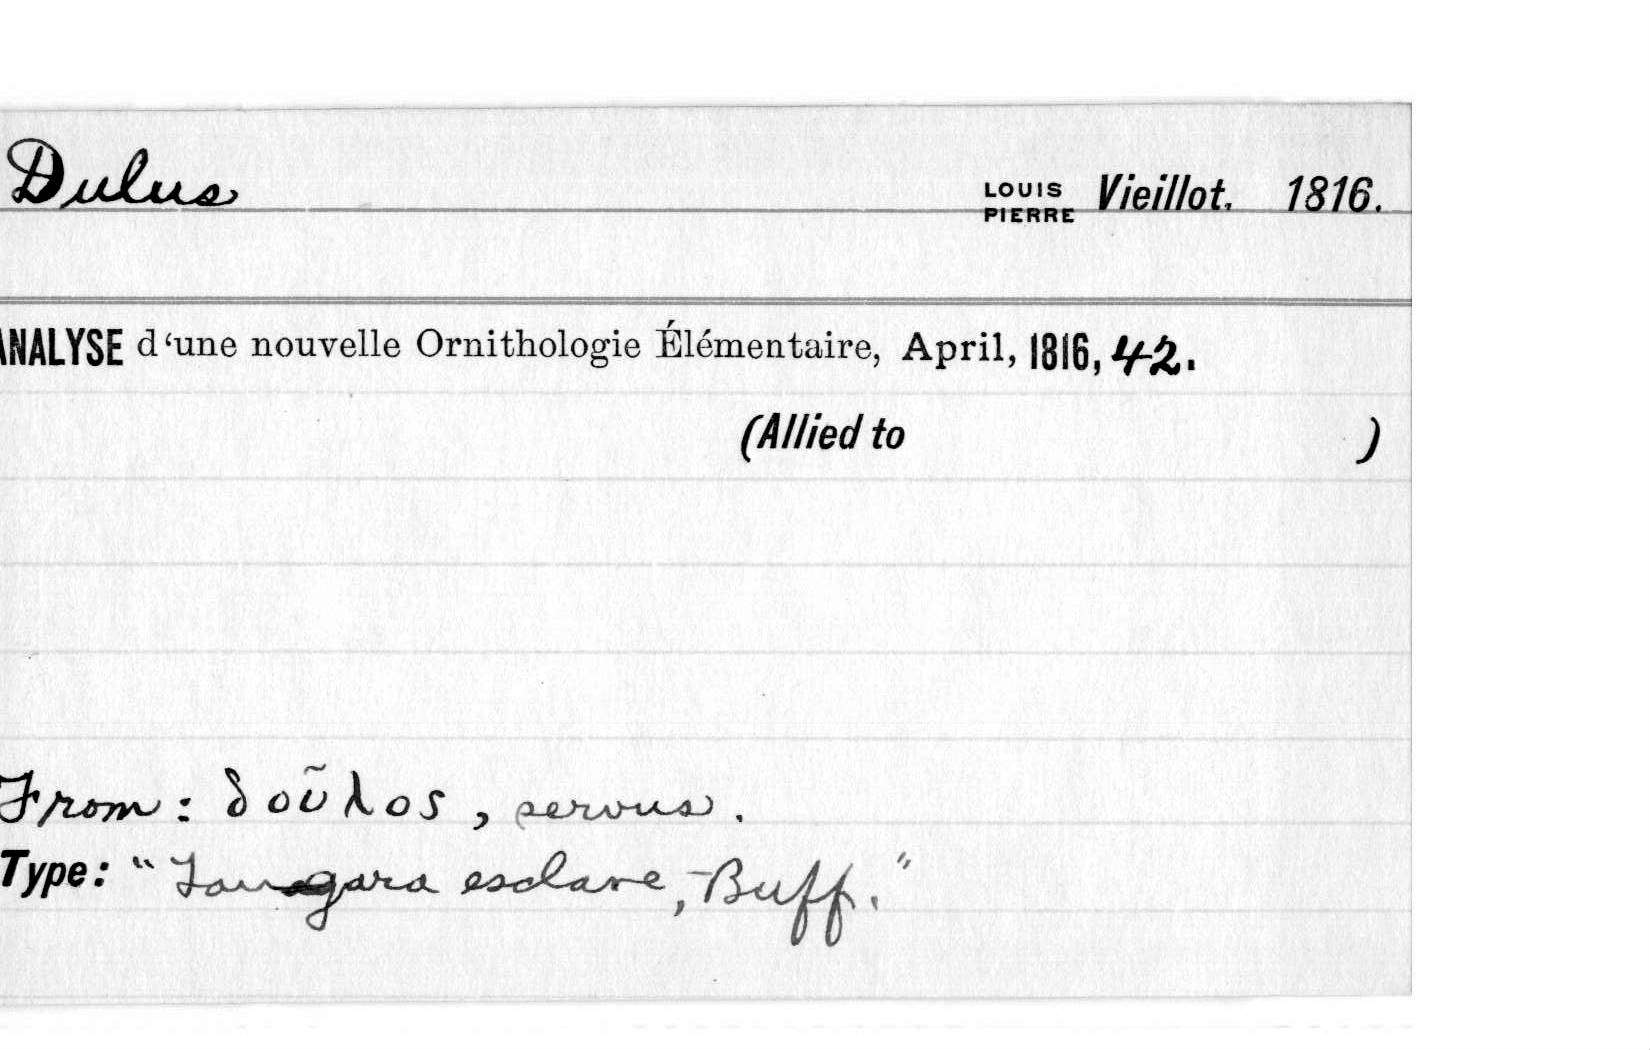 Dulus LOUIS PIERRE Vieillot. 1816.
ANALYSE d'une nouvelle Ornithologie Élémentaire, April, 1816, 42.
(Allied to )
From: δοῦλος, servus.
Type: "Tangara esclave, Buff."